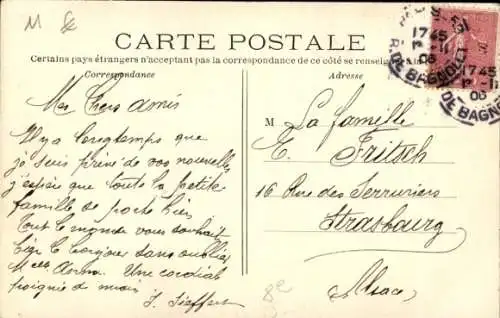 M &
CARTE POSTALE
Certains pays étrangers n'acceptant pas la correspondance de ce côté se renseigner à la
Correspondance
Adresse
Mes Chers amis
Il y a longtemps que
je suis privé de vos nouvelles
j'espère que toute la petite
famille se porte bien
Tout le monde vous souhait
bien le bonjour sans oublier
Melle Une cordial
poignée de main
J. Sieffert
M La famille
E. Fritsch
16 Rue des Serruriers
Strasbourg
Alsace
8e
1745
1r -11
06
R. DE BAGNOLET
1745
1r -11
06
DE BAGN